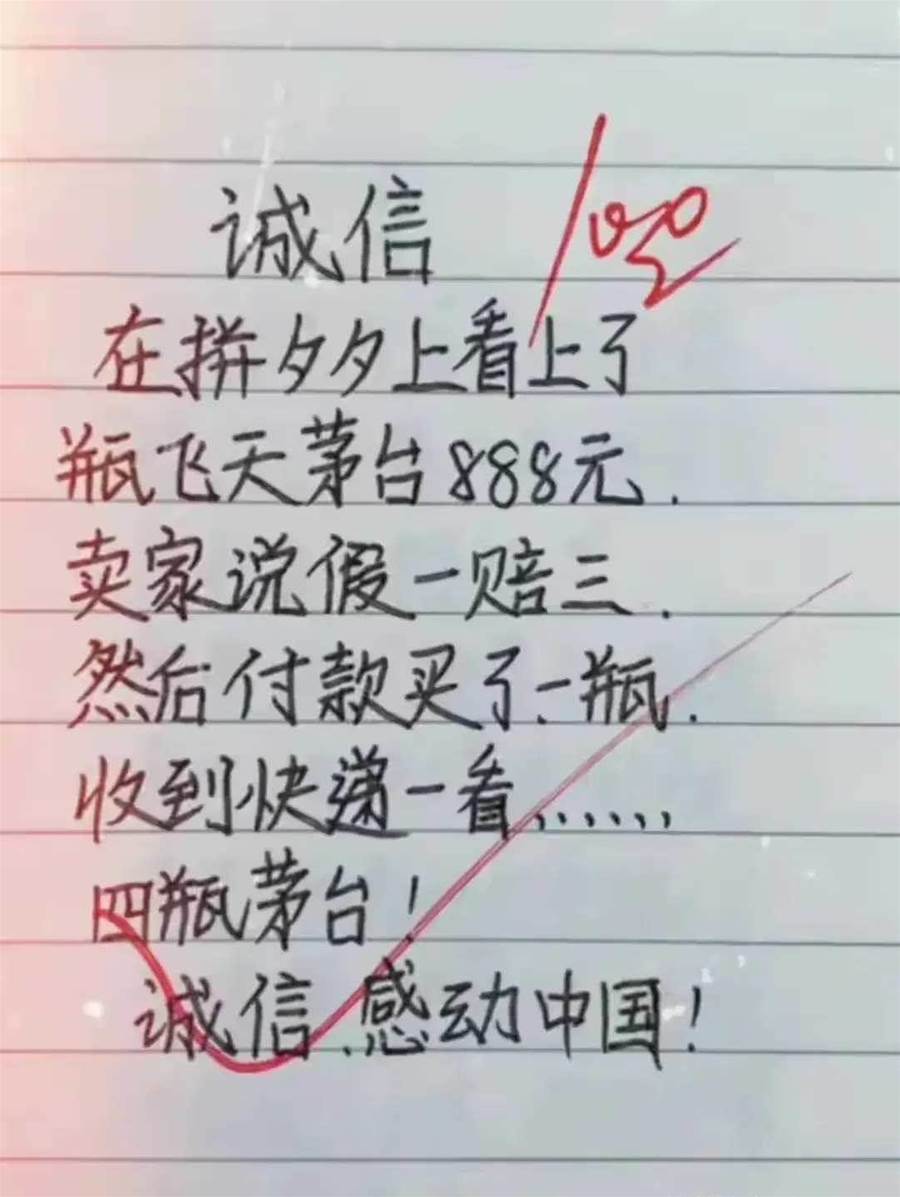 诚信
100
在拼夕夕上看上了
瓶飞天茅台888元.
卖家说假一赔三.
然后付款买了一瓶.
收到快递一看......
四瓶茅台!
诚信.感动中国!